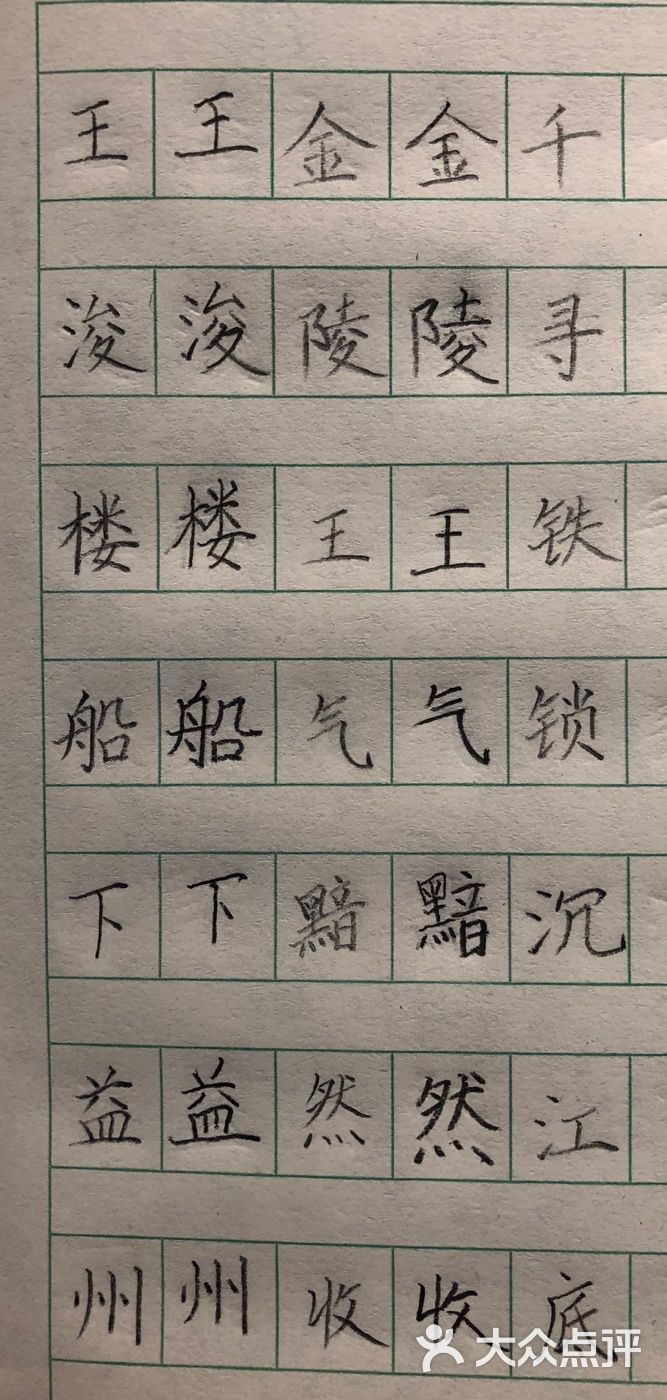 王浚楼船下益州
王浚楼船下益州
金陵王气黯然收
金陵王气黯然收
千寻铁锁沉江底
大众点评